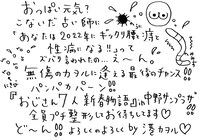 おっぱい元気?
こないだ占い師に
「あなたは2022年にギックリ腰と痔と
性病になる!!」って
ズバリ言われたのーえーん
無傷のカヲルに逢える最後のチャンス!!
パンパカパーン!
おじさん7人新春物語@中野サンプラザ
全員プチ整形しお待ちしてます♡
ど〜ん!! よろしくのよろしく by 湾カヲル♡